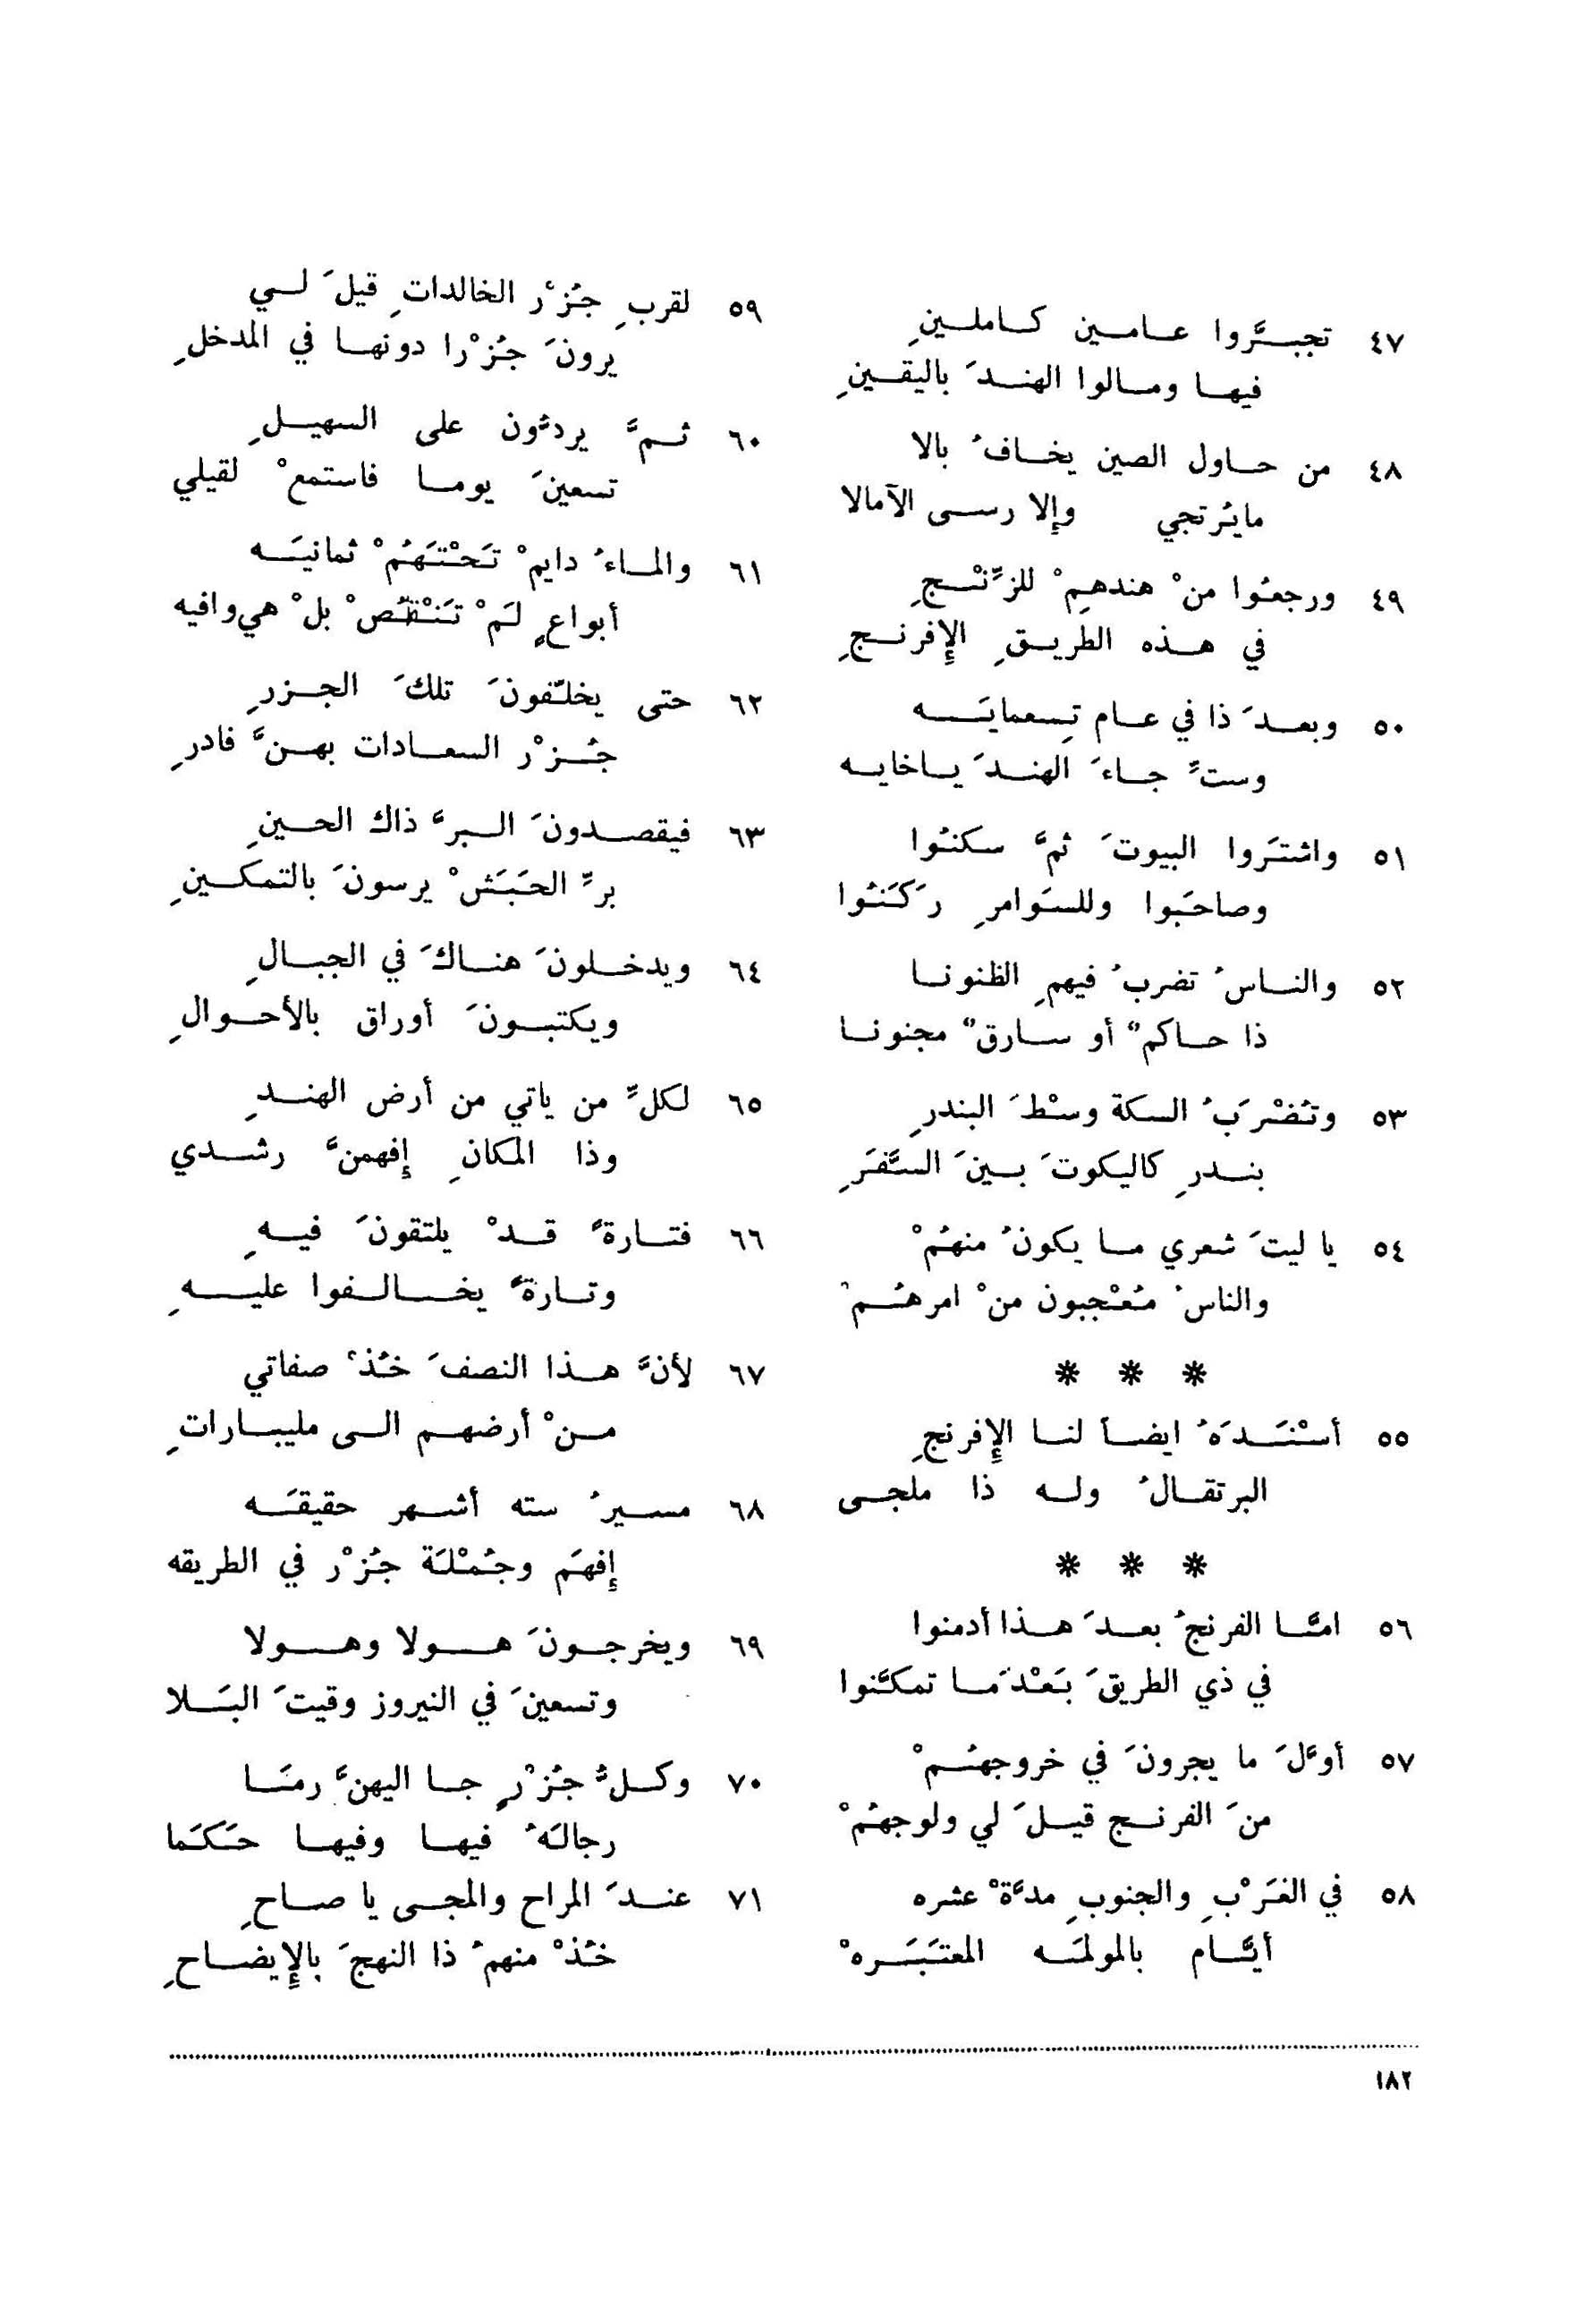 ٤٧ تجبَّروا عامين كاملينِ
فيها ومالوا الهندَ باليقينِ
٤٨ من حاول الصين يخافُ بالا
مايُرتجي وإلا رسى الآمالا
٤٩ ورجعُوا منْ هندهِمْ للزِّنْجِ
في هذه الطريقِ الإفرنجِ
٥٠ وبعدَ ذا في عام تِسعمايَه
وستٍّ جاءَ الهندَ ياخايه
٥١ واشتَروا البيوتَ ثمَّ سكنُوا
وصاحَبوا وللسَوامرِ رَكَنُوا
٥٢ والناسُ تضربُ فيهمِ الظنونا
ذا حاكمٌ أو سارقٌ مجنونا
٥٣ وتُضْرَبُ السكة وسْطَ البندرِ
بندرِ كاليكوتَ بينَ السَّفَرِ
٥٤ يا ليتَ شعري ما يكونُ منهُمْ
والناسُ مُعْجبون منْ امرهُمْ
* * *
٥٥ أسْنَدَهُ ايضاً لنا الإفرنجِ
البرتقالُ وله ذا ملجى
* * *
٥٦ امَّا الفرنجُ بعدَ هذا أدمنوا
في ذي الطريقَ بَعْدَما تمكَّنوا
٥٧ أوَّلَ ما يجرونَ في خروجهُمْ
منَ الفرنج قيلَ لي ولوجهُمْ
٥٨ في الغَرْبِ والجنوبِ مدَّةْ عشره
أيَّام بالمولمَه المعتَبَرهْ
٥٩ لقربِ جُزْر الخالداتِ قيلَ لي
يرونَ جُزْرا دونها في المدخلِ
٦٠ ثمَّ يردُّون على السهيلِ
تسعينَ يوما فاستمعْ لقيلي
٦١ والماءُ دايمْ تَحْتَهُمْ ثمانيَه
أبواعٍ لَمْ تَنْقُصْ بلْ هي وافيه
٦٢ حتى يخلّفونَ تلكَ الجزرِ
جُزْر السعادات بهنَّ فادرِ
٦٣ فيقصدونَ البرَّ ذاك الحينِ
برِّ الحَبَشْ يرسونَ بالتمكينِ
٦٤ ويدخلونَ هناكَ في الجبالِ
ويكتبونَ أوراق بالأحوالِ
٦٥ لكلِّ من ياتي من أرض الهندِ
وذا المكانِ إفهمنَّ رشدي
٦٦ فتارةً قدْ يلتقونَ فيهِ
وتارةً يخالفوا عليهِ
٦٧ لأنَّ هذا النصفَ خُذْ صفاتي
منْ أرضهم الى مليباراتِ
٦٨ مسيرُ سته أشهر حقيقَه
إفهَم وجُمْلَة جُزْر في الطريقه
٦٩ ويخرجونَ هولا وهولا
وتسعينَ في النيروز وقيتَ البَلا
٧٠ وكلُّ جُزْرٍ جا اليهنَّ رمَا
رجالَهُ فيها وفيها حَكَما
٧١ عندَ المراح والمجى يا صاحِ
خُذْ منهمُ ذا النهجَ بالإيضاحِ
١٨٢